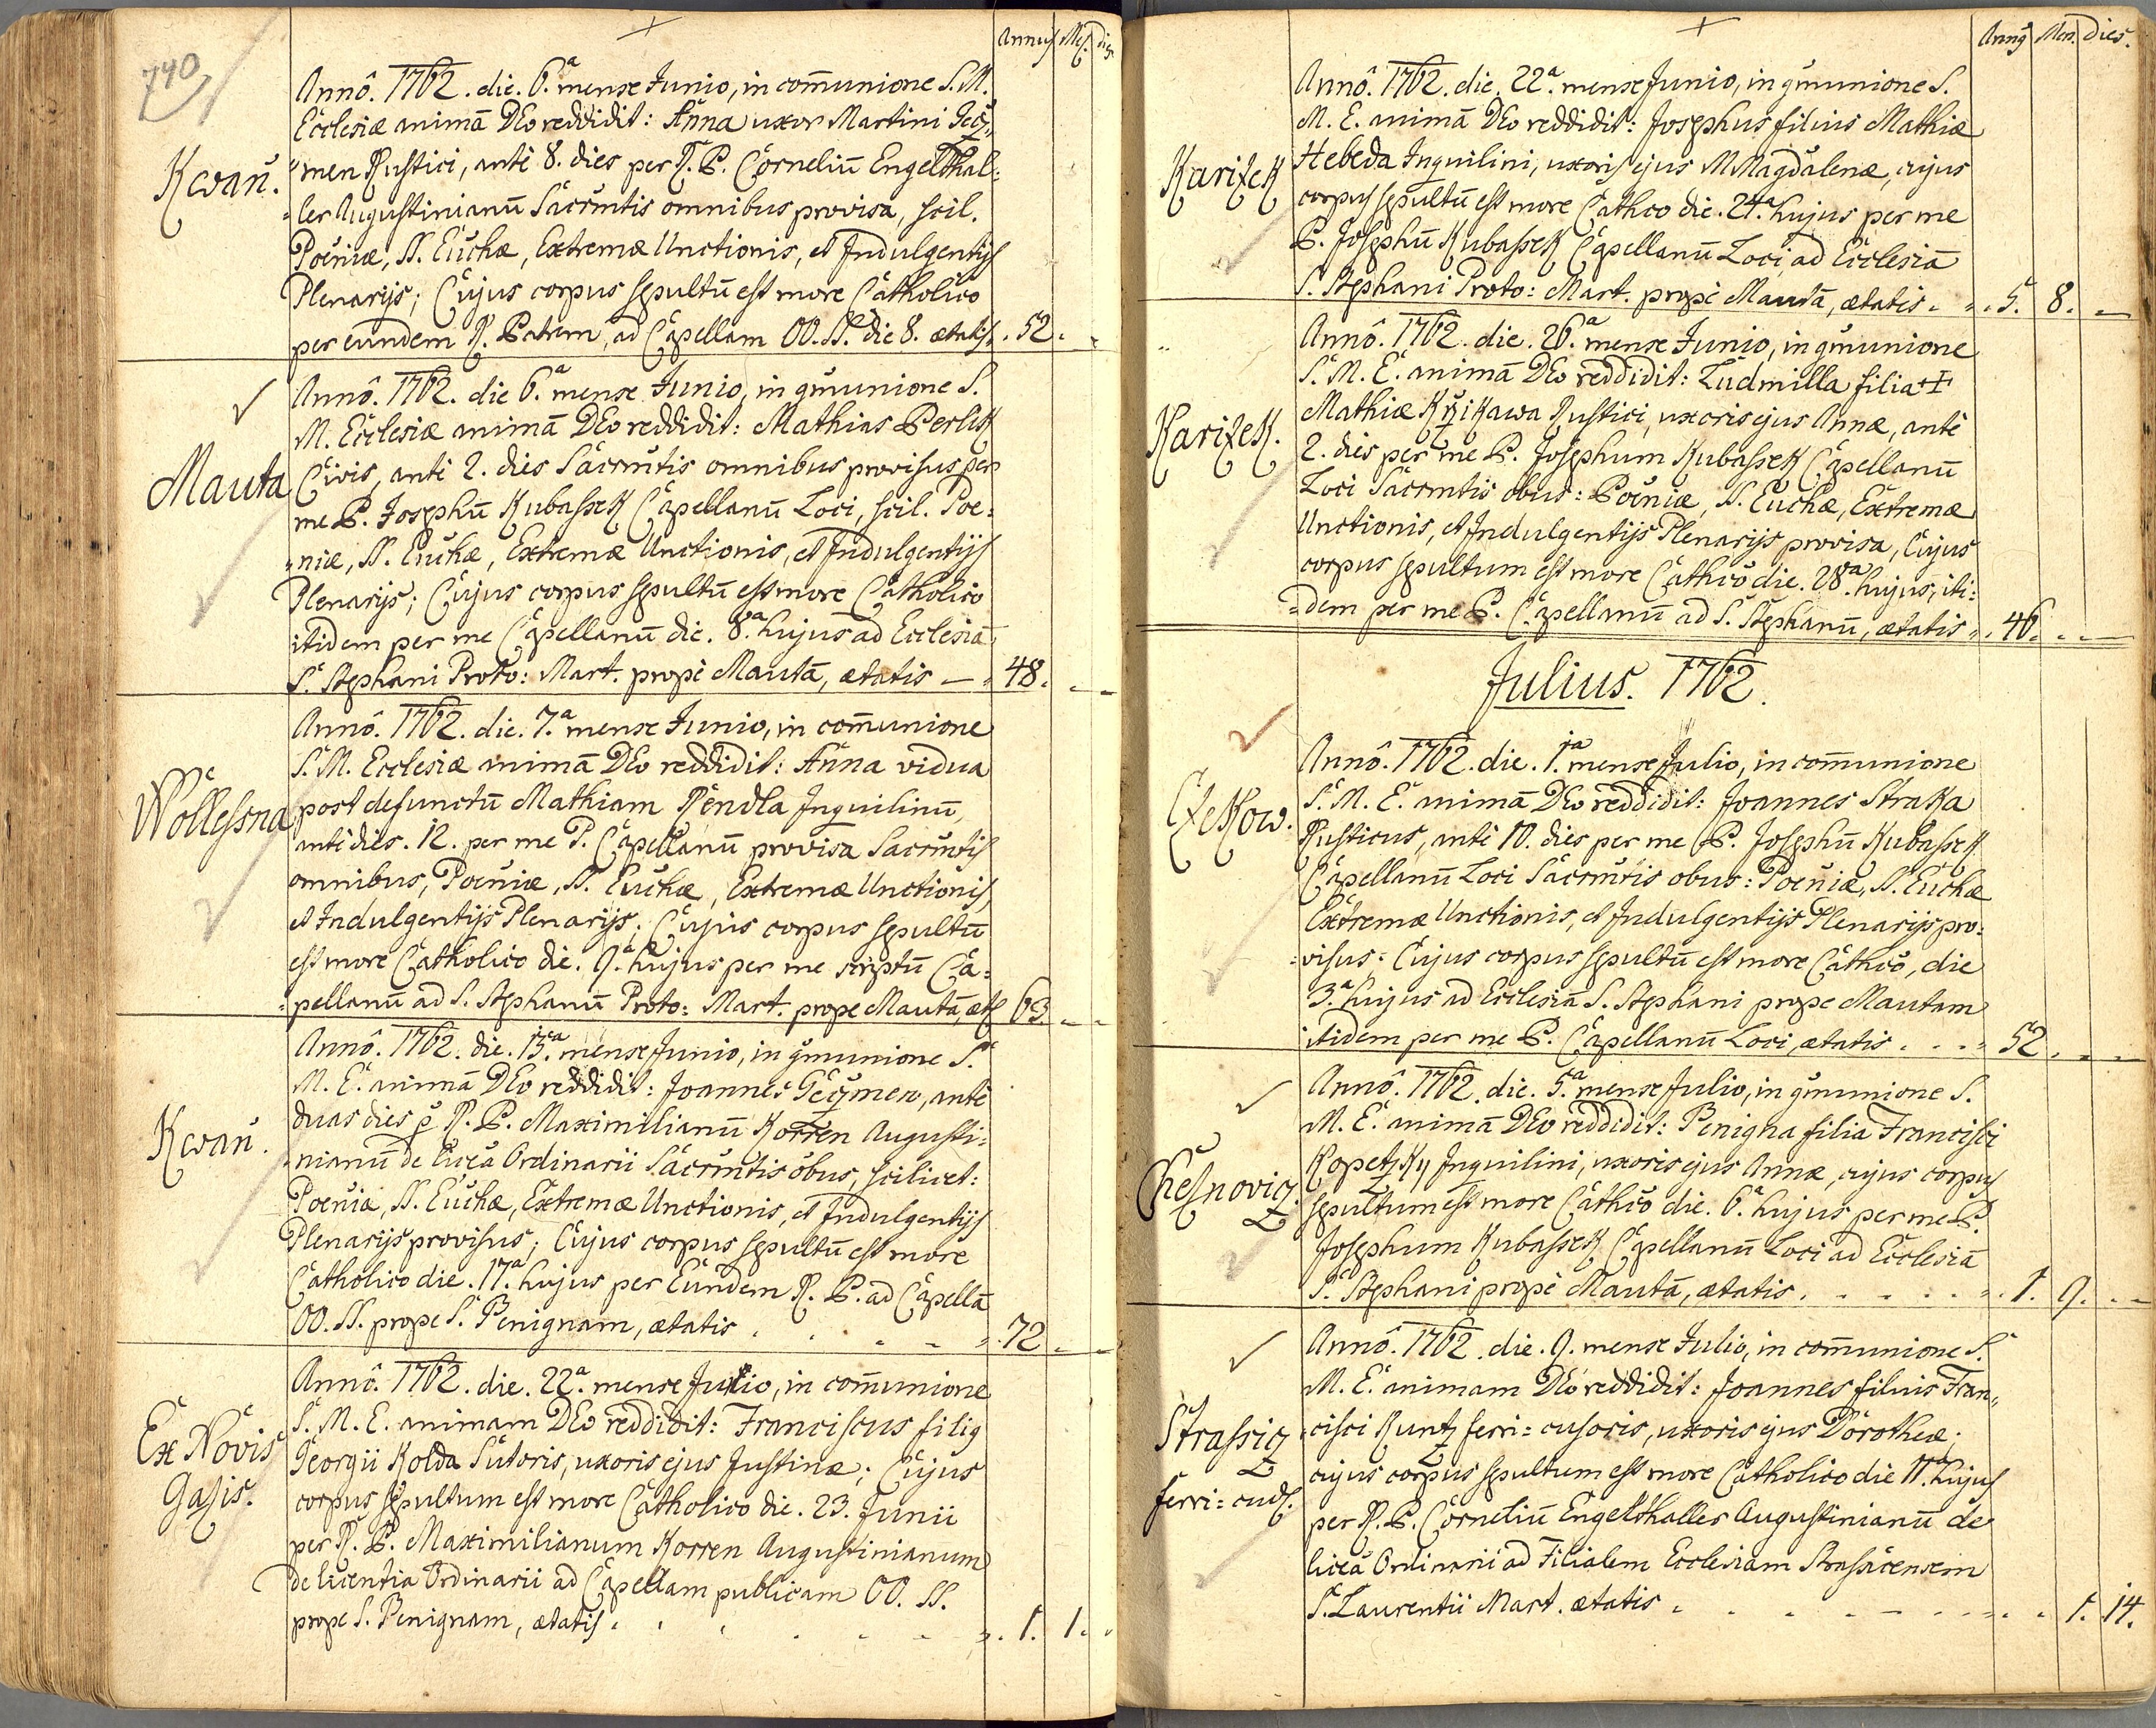 740
Annus Mes. dies
Annô. 1762. die. 6.ª mense Junio, in com̄unione S. M.
Ecclesiæ animā DEo reddidit: Anna uxor Martini Gecz,,
Kwaň. ,,men Rustici, antè 8. dies per R. P. Corneliū Engelthal=
=ler Augustinianū Sacrm̄tis omnibus provisa, scil.
Poēniæ, SS. Euchæ, Extremæ Unctionis, et Indulgentijs
Plenarijs; Cujus corpus sepultū est more Catholico
per eundem R. Patrem, ad Capellam OO. SS. die 8. ætatis. 52.
Annô. 1762. die 6.ª mense Junio, in com̄unione S.
M. Ecclesiæ animā DEo reddidit: Mathias Perlik
Mauta Civis, antè 2. dies Sacrm̄tis omnibus provisus per
me P. Josephū Kubassek Capellanū Loci, scil. Poe=
=niæ, SS. Euchæ, Extremæ Unctionis, et Indulgentijs
Plenarijs; Cujus corpus sepultū est more Catholico
itidem per me Capellanū die. 8.ª hujus ad Ecclesiā
S. Stephani Proto: Mart. propè Mautā, ætatis 48.
Annô. 1762. die. 7.ª mense Junio, in com̄unione
S. M. Ecclesiæ animā DEo reddidit: Anna vidua
Wollessna post defunctū Mathiam Rendla Inquilinū,
antè dies. 12. per me P. Capellanū provisa Sacrm̄tis
omnibus, Poēniæ, SS. Euchæ, Extremæ Unctionis,
et Indulgentijs Plenarijs; Cujus corpus sepultū
est more Catholico die. 9.ª hujus per me scriptū Ca=
=pellanū ad S. Stephanū Proto: Mart. prope Mautā, æt. 63.
Annô. 1762. die. 15.ª mense Junio, in com̄unione S.
M. E. animā DEo reddidit: Joannes Geczmen, antè
Kwaň. duas dies p R. P. Maximilianū Korren Augusti=
=nianū de licēa Ordinarii Sacrm̄tis obus, scilicet:
Poēnia, SS. Euchæ, Extremæ Unctionis, et Indulgentijs
Plenarijs provisus; Cujus corpus sepultū est more
Catholico die. 17.ª hujus per Eundem R. P. ad Capellā
OO. SS. prope S. Benignam, ætatis . . . . 72.
Annô. 1762. die. 22.ª mense Junio, in com̄unione
S. M. E. animam DEo reddidit: Franciscus filig
Ex Novis Georgii Kolda Sutoris, uxoris ejus Justinæ; Cujus
Gazis. corpus sepultum est more Catholico die. 23. Junii
per R. P. Maximilianum Korren Augustinianum
de licentia Ordinarii ad Capellam publicam OO. SS.
prope S. Benignam, ætatis . . . . . 1. 1.
Anng Men. dies.
Annô. 1762. die. 22.ª mense Junio, in com̄unione S.
M. E. animā DEo reddidit: Josephus filius Mathiæ
Karizek Hebeda Inquilini, uxoris ejus M Magdalenæ, cujus
corpus sepultū est more Cathco die. 24.ª hujus per me
P. Josephū Kubassek Capellanū Loci ad Ecclesiā
S. Stephani Proto: Mart. propè Mautā, ætatis. 5. 8.
Annô. 1762. die. 26.ª mense Junio, in com̄unione
S. M. E. animā DEo reddidit: Ludmilla filia +
Karizek. Mathiæ Krzikawa Rustici, uxoris ejus Annæ, antè
2. dies per me P. Josephum Kubassek Capellanū
Loci Sacrm̄tis obus: Poēniæ, SS. Euchæ, Extremæ
Unctionis, et Indulgentijs Plenarijs provisa, Cujus
corpus sepultum est more Cathco die. 28.ª hujus, iti=
=dem per me P. Capellanū ad S. Stephanū, ætatis. 46.
Julius. 1762.
Annô. 1762. die. 1.ª mense Julio, in com̄unione
S. M. E. animā DEo reddidit: Joannes Straka
Czekow. Rusticus, antè 10. dies per me P. Josephū Kubassek
Capellanū Loci Sacrm̄tis obus: Poēniæ, SS. Euchæ
Extremæ Unctionis, et Indulgentijs Plenarijs pro=
=visus: Cujus corpus sepultū est more Cathco, die
3.ª hujus ad Ecclesiā S. Stephani prope Mautam
itidem per me P. Capellanū Loci, ætatis . . . 52.
Annô. 1762. die. 5.ª mense Julio, in com̄unione S.
M. E. animā DEo reddidit: Benigna filia Francisci
Chesnovicz. Kopetzky Inquilini, uxoris ejus Annæ, cujus corpus
sepultum est more Cathco die. 6.ª hujus per me P.
Josephum Kubassek Capellanū Loci ad Ecclesiā
S. Stephani propè Mautā, ætatis . . . . . 1. 9.
Annô. 1762. die. 9. mense Julio, in com̄unione S.
M. E. animam DEo reddidit: Joannes filius Fran,,
Strassicz cisci Kuntz ferri=cusoris, uxoris ejus Dorotheæ;
cujus corpus sepultum est more Catholico die 11.ª hujus
ferri=cud. per R. P. Corneliū Engelthaller Augustinianū de
licēa Ordinarii ad Filialem Ecclesiam Strassicensem
S. Laurentii Mart. ætatis . . . . . 1. 14.